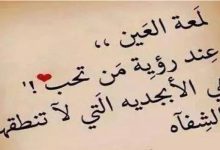 لمعة العَين ,,
عِند رؤية مَن تحب !'
ي الأبجديه الَتي لآ تنطقها
الشِفآه